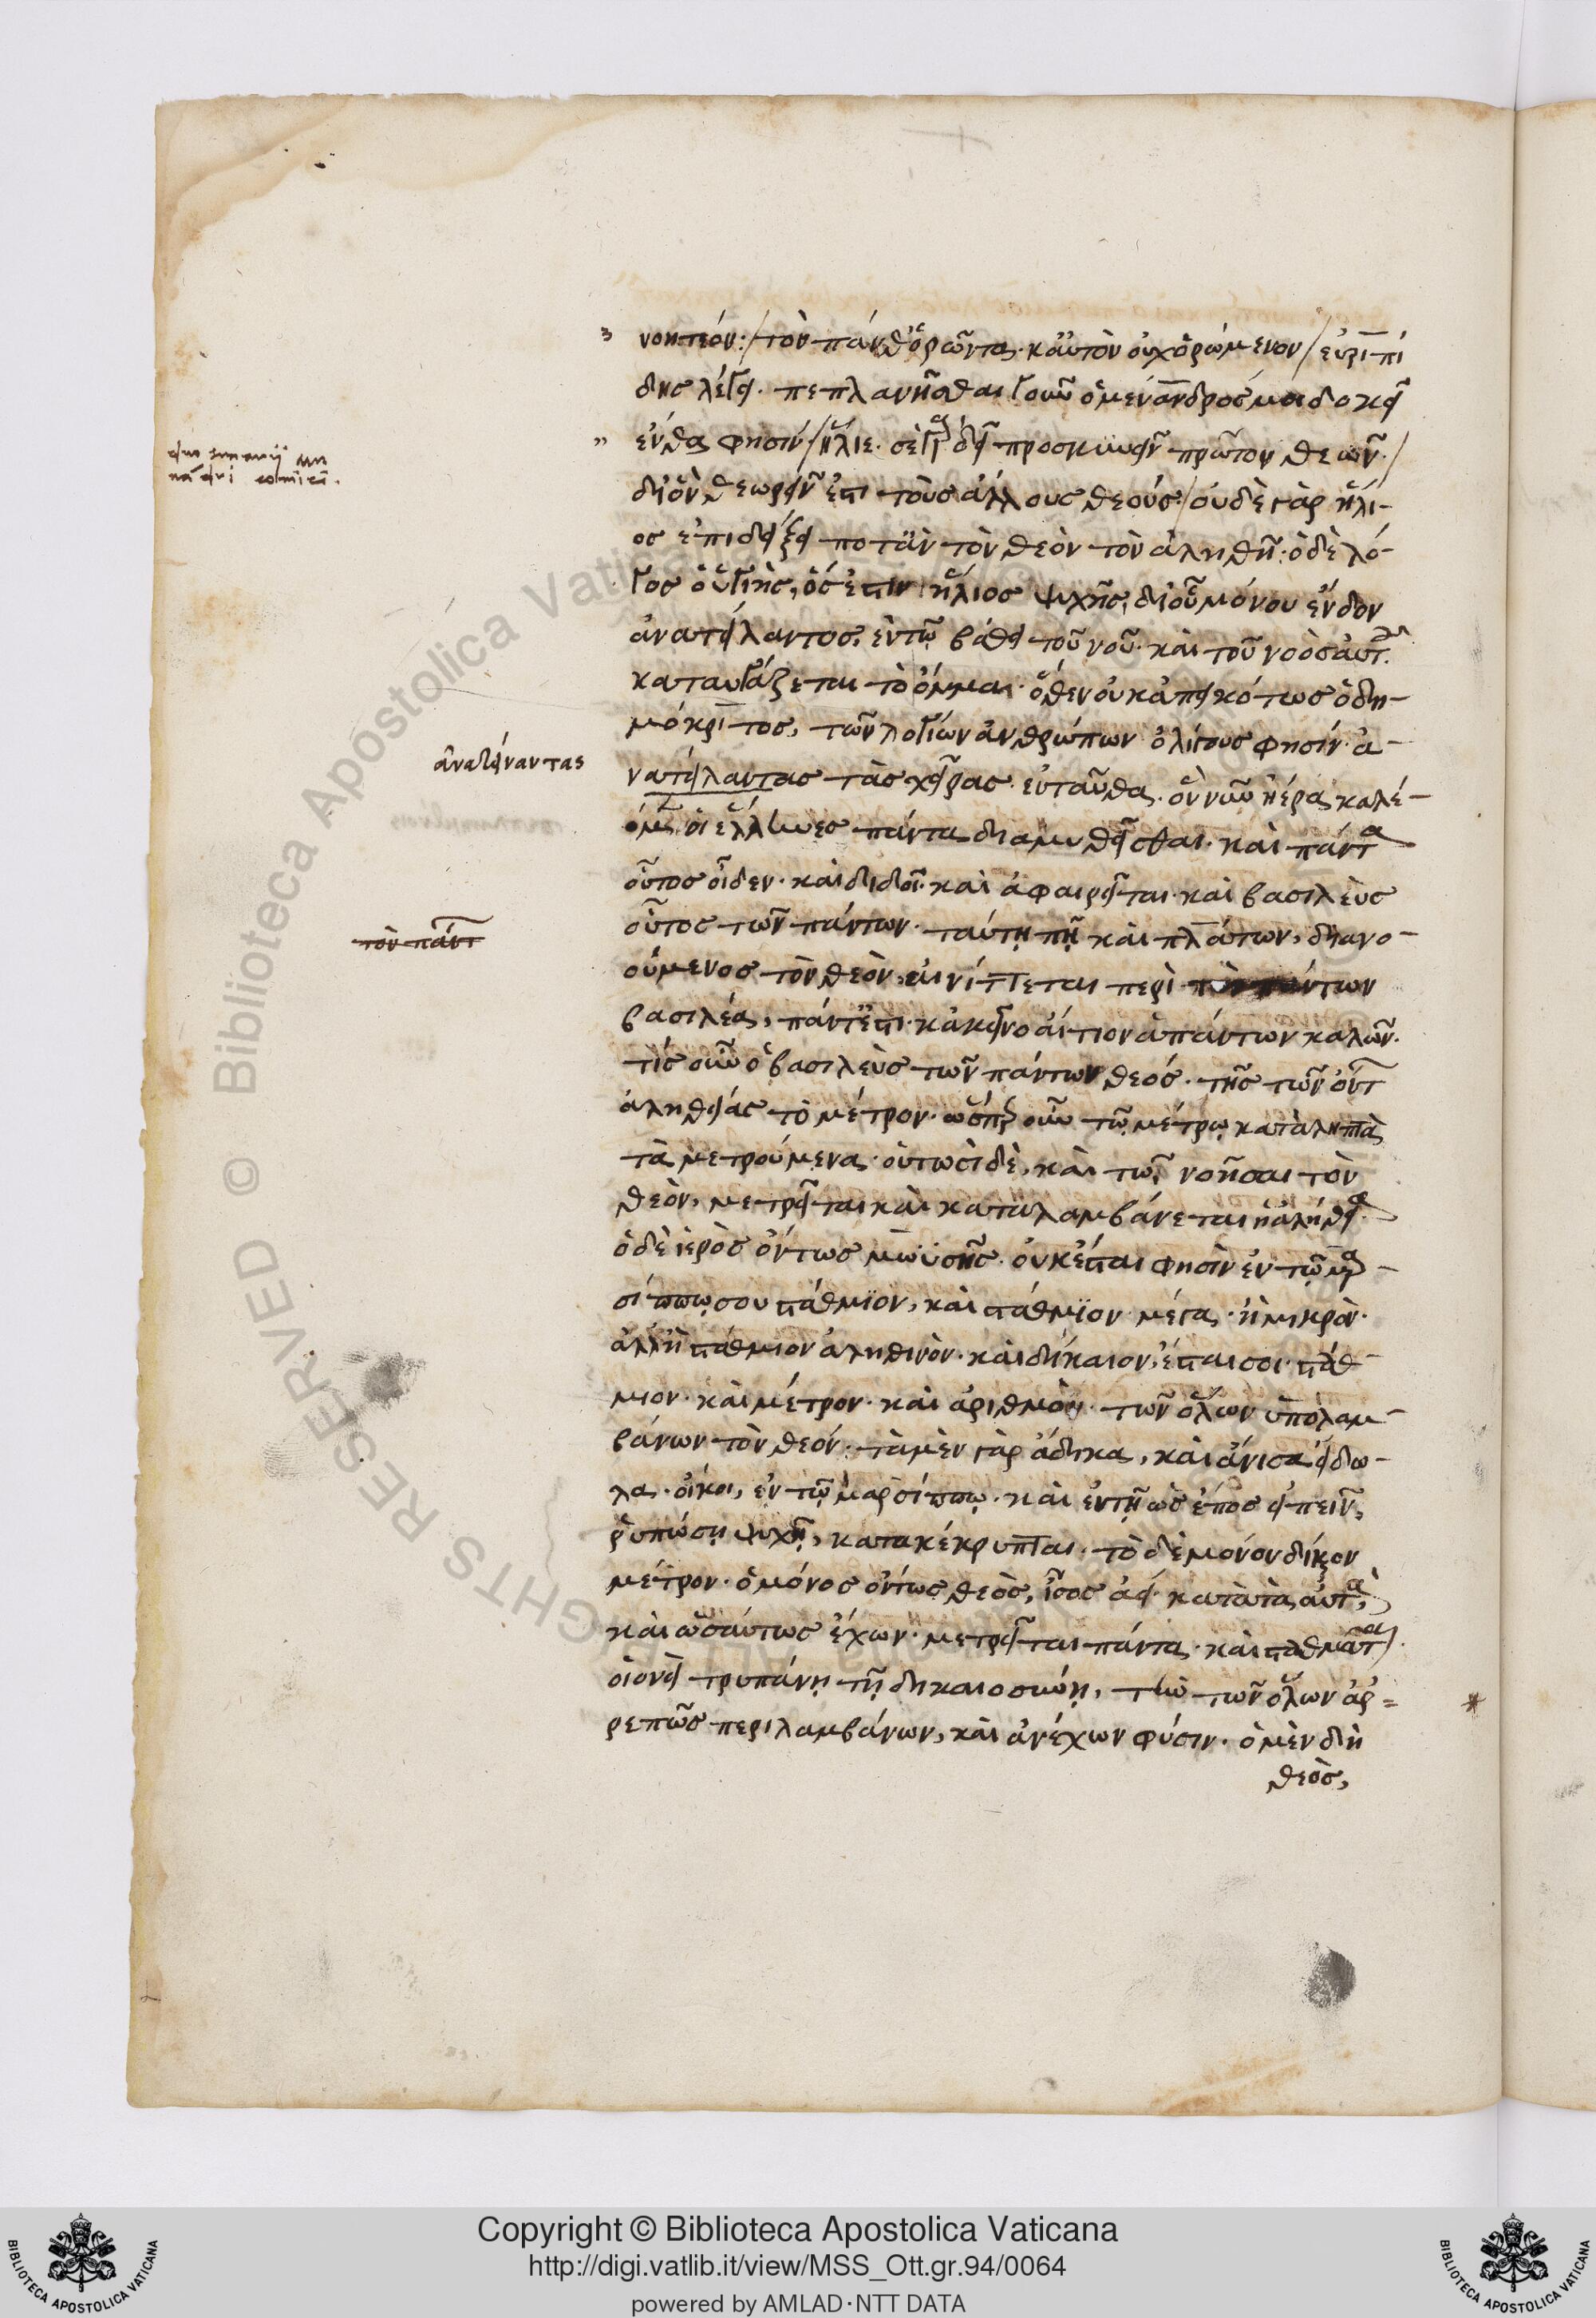 νοητέον: / τὸν πάνθ' ὁρῶντα. καὐτὸν οὐχ ὁρώμενον / εὐριπί
δης λέγει. πεπλανῆσθαι γοῦν ὁ μένανδρός μοι δοκεῖ
ἔνθα φησίν / ἥλιε. σὲ γὰρ δεῖ προσκυνεῖν πρῶτον θεῶν. /
δι' ὃν θεωρεῖν ἐστι τοὺς ἄλλους θεούς: / οὐδὲ γὰρ ἥλι-
ος ἐπιδείξει ποτ' ἂν τὸν θεὸν τὸν ἀληθῆ. ὁ δὲ λό-
γος ὁ ὑγιὴς, ὅς ἐστιν ἥλιος ψυχῆς, δι' οὗ μόνου ἔνδον
ἀνατείλαντος, ἐν τῷ βάθει τοῦ νοῦ. καὶ τοῦ νοὸς αὐτοῦ.
καταυγάζεται τὸ ὄμμα. ὅθεν οὐκ ἀπεικότως ὁ δη-
μόκριτος, τῶν λογίων ἀνθρώπων ὀλίγους φησίν. ἀ-
νατείλαντας τὰς χεῖρας ἐνταῦθα. ὃν νῦν ἠέρα καλέ-
ομεν οἱ ἕλληνες πάντα διαμυθεῖσθαι. καὶ πάντα
οὗτος οἶδεν. καὶ διδοῖ. καὶ ἀφαιρεῖται. καὶ βασιλεὺς
οὗτος τῶν πάντων. ταύτῃ πῃ καὶ πλάτων, διανο-
ούμενος τὸν θεὸν αἰνίττεται περὶ τὸν πάντων
βασιλέα, πάντ' ἐστι. κἀκεῖνο αἴτιον ἁπάντων καλῶν.
τίς οὖν ὁ βασιλεὺς τῶν πάντων θεός. τῆς τῶν ὄντ
ἀληθείας τὸ μέτρον. ὥσπερ οὖν τῷ μέτρῳ καταληπτὰ
τὰ μετρούμενα. οὑτωσὶ δὲ, καὶ τῷ νοῆσαι τὸν
θεὸν, μετρεῖται καὶ καταλαμβάνεται ἡ ἀλήθεια.
ὁ δὲ ἱερὸς ὄντως μωϋσῆς. οὐκ ἔσται φησὶν ἐν τῷ μαρ-
σίππῳ σου στάθμϊον, καὶ στάθμϊον μέγα. ἢ μικρὸν.
ἀλλ' ἢ στάθμιον ἀληθινὸν. καὶ δίκαιον, ἔσται σοι. στάθ-
μιον. καὶ μέτρον. καὶ ἀριθμὸν. τῶν ὅλων ὑπολαμ-
βάνων τὸν θεόν. τὰ μὲν γὰρ ἄδικα, καὶ ἄνισα εἴδω-
λα. οἴκοι, ἐν τῷ μαρσίππῳ. καὶ ἐν τῇ ὡς ἔπος εἰπεῖν,
ῥυπώσῃ ψυχῇ, κατακέκρυπται. τὸ δὲ μόνον δίκαιον
μέτρον. ὁ μόνος ὄντως θεὸς, ἴσος ἀεὶ. κατὰ τὰ αὐτὰ,
καὶ ὡσαύτως ἔχων. μετρεῖται πάντα. καὶ σταθμᾶται.
οἱονεὶ τρυπάνῃ τῇ δικαιοσύνῃ, τὴν τῶν ὅλων ἀρ=
ρεπῶς περιλαμβάνων, καὶ ἀνέχων φύσιν. ὁ μὲν δὴ
θεὸς,
ἀνατείναντας
τὸν πάντ
Copyright © Biblioteca Apostolica Vaticana
http://digi.vatlib.it/view/MSS_Ott.gr.94/0064
powered by AMLAD·NTT DATA
BIBLIOTECA APOSTOLICA VATICANA
BIBLIOTECA APOSTOLICA VATICANA
Biblioteca Apostolica Vaticana
©
RIGHTS RESERVED